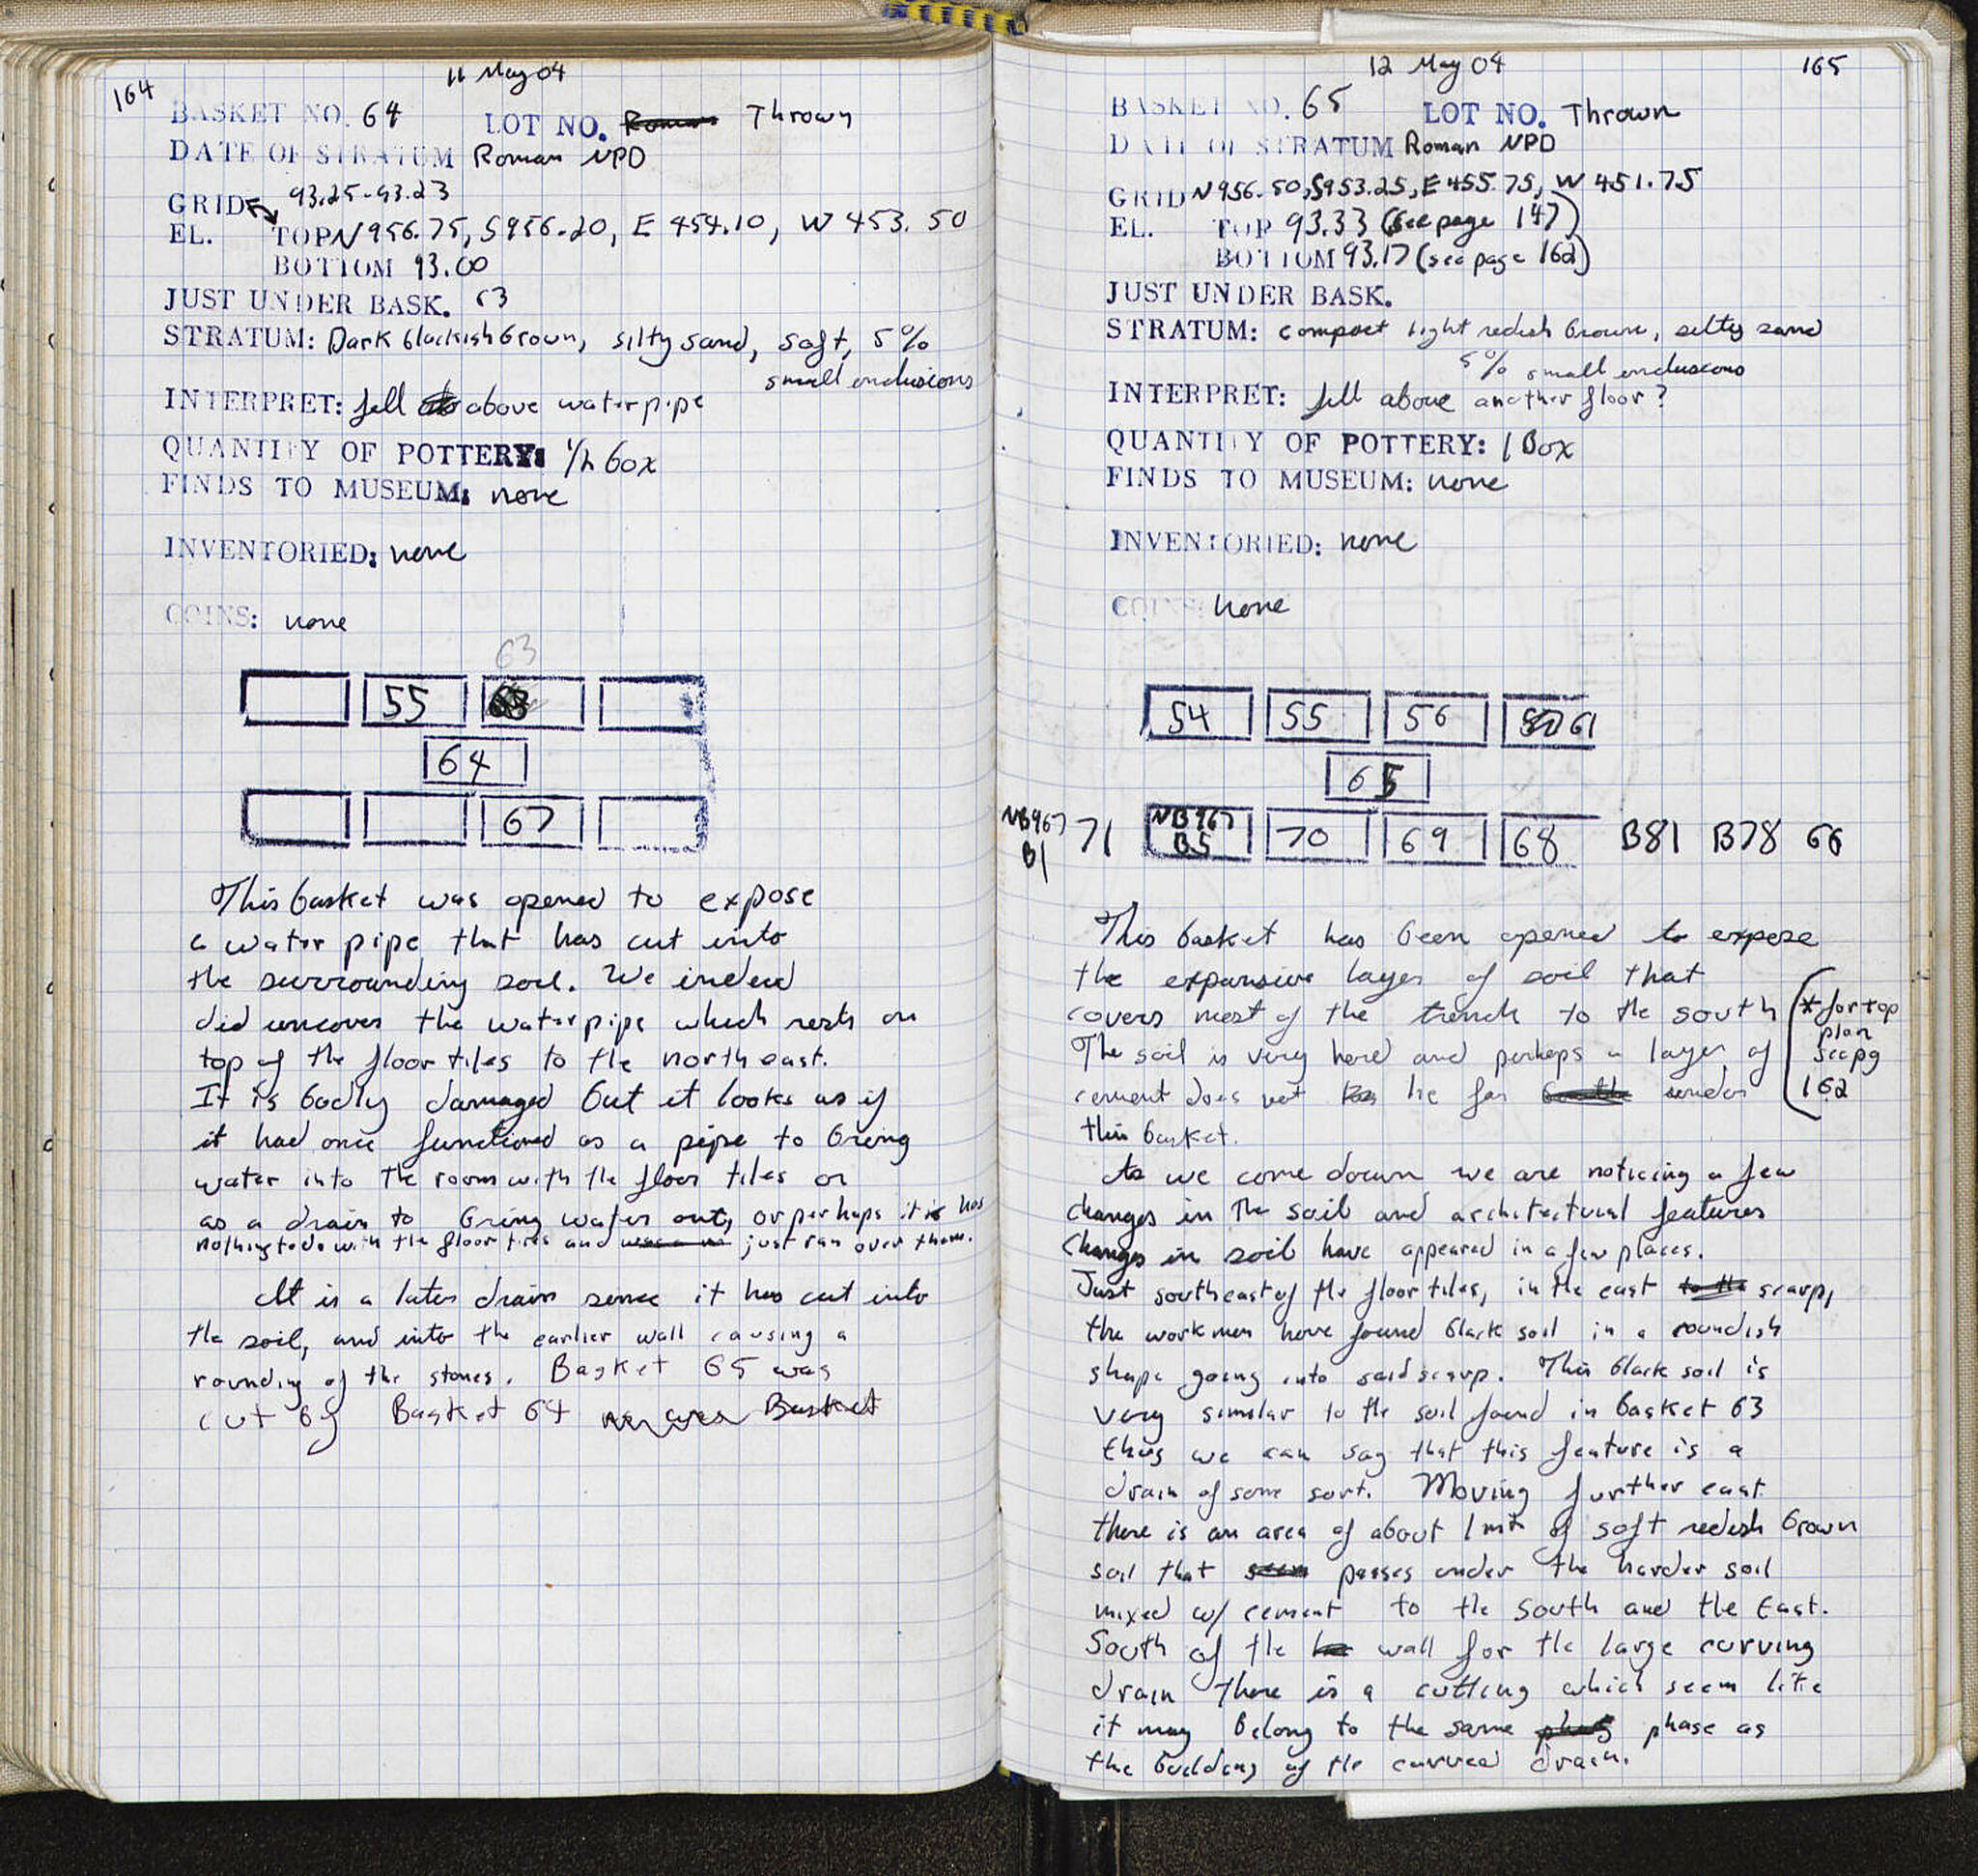 164
11 May 04
BASKET NO. 64 LOT NO. Roman Thrown
DATE OF STRATUM Roman NPD
GRID 93.25-93.23
EL. TOP N956.75, S956.20, E 454.10, W 453.50
BOTTOM 93.00
JUST UNDER BASK. 63
STRATUM: Dark blackish brown, silty sand, soft, 5%
small inclusions
INTERPRET: fill above water pipe
QUANTITY OF POTTERY: 1/2 box
FINDS TO MUSEUM: none
INVENTORIED: none
COINS: none
63
55 63
64
67
This basket was opened to expose
a water pipe that has cut into
the surrounding soil. We indeed
did uncover the water pipe which rests on
top of the floor tiles to the north east.
It is badly damaged but it looks as if
it had once functioned as a pipe to bring
water into the room with the floor tiles or
as a drain to bring water out, or perhaps it is has
nothing to do with the floor tiles and just ran over them.
It is a later drain since it has cut into
the soil, and into the earlier wall causing a
rounding of the stones. Basket 65 was
cut by Basket 64 Basket
12 May 04
165
BASKET NO. 65 LOT NO. Thrown
DATE OF STRATUM Roman NPD
GRID N956.50, S953.25, E455.75, W 451.75
EL. TOP 93.33 (see page 147)
BOTTOM 93.17 (see page 162)
JUST UNDER BASK.
STRATUM: compact light redish brown, silty sand
5% small inclusions
INTERPRET: fill above another floor?
QUANTITY OF POTTERY: 1 Box
FINDS TO MUSEUM: none
INVENTORIED: none
COINS: none
54 55 56 61
65
NB967 B1 71 NB967 B5 70 69 68 B81 B78 66
This basket has been opened to expose
the expansive layer of soil that
covers most of the trench to the south
The soil is very hard and perhaps a layer of
cement does not lie far under
this basket.
* for top
plan
see pg
162
As we come down we are noticing a few
changes in the soil and architectural features
Changes in soil have appeared in a few places.
Just southeast of the floor tiles, in the east to the scarp,
the workmen have found black soil in a roundish
shape going into said scarp. This black soil is
very similar to the soil found in basket 63
thus we can say that this feature is a
drain of some sort. Moving further east
there is an area of about 1 mt of soft redish brown
soil that seem passes under the harder soil
mixed w/ cement to the south and the East.
South of the wall for the large curving
drain there is a cutting which seem like
it may belong to the same phase as
the building of the curved drain.